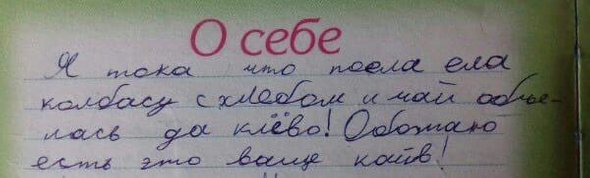 О себе
Я тока что поела ела
колбасу с хлебом и чай обье-
лась да клёво! Обожаю
есть это ваще кайв!